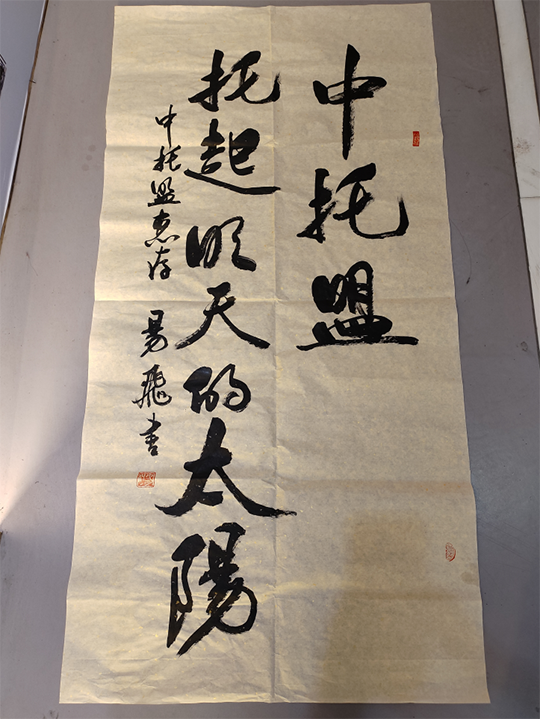 中托盟
托起明天的太陽
中托盟惠存
易飛書